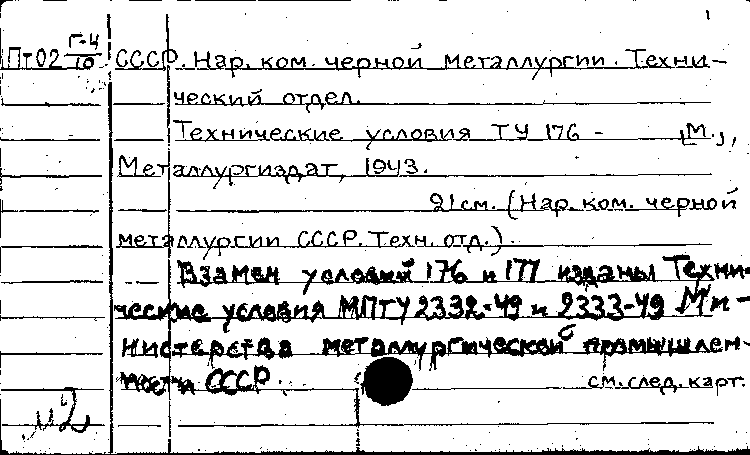 1
Пт02 Г-4/10 СССР. Нар. ком. черной металлургии. Техни-
ческий отдел.
Технические условия ТУ 176 - , М.,
Металлургиздат, 1943.
21 см. (Нар. ком. черной
металлургии СССР. Техн. отд.).
Взамен условий 176 и 177 изданы Техни-
ческие условия МПТУ 2332-49 и 2333-49 Ми-
нистерства металлургической промышлен-
ности СССР.
см. след. карт.
м2